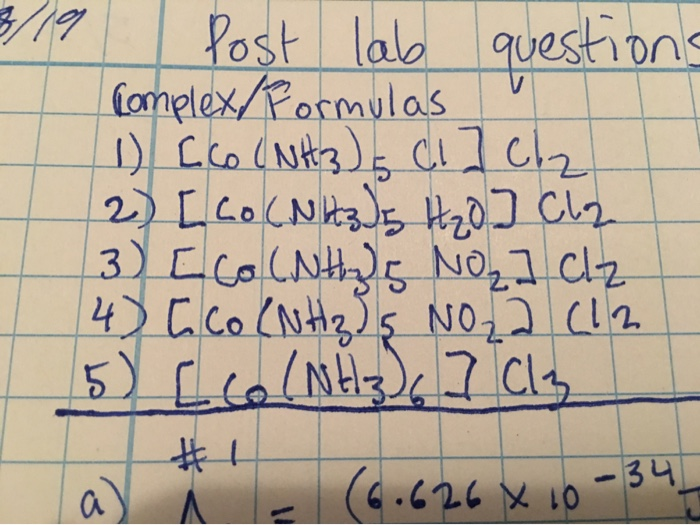 8/19 Post lab questions
Complex/Formulas
1) [Co(NH3)5 Cl] Cl2
2) [Co(NH3)5 H2O] Cl2
3) [Co(NH3)5 NO2] Cl2
4) [Co(NH3)5 NO2] Cl2
5) [Co(NH3)6] Cl3
#1
a) = (6.626 x 10-34 J